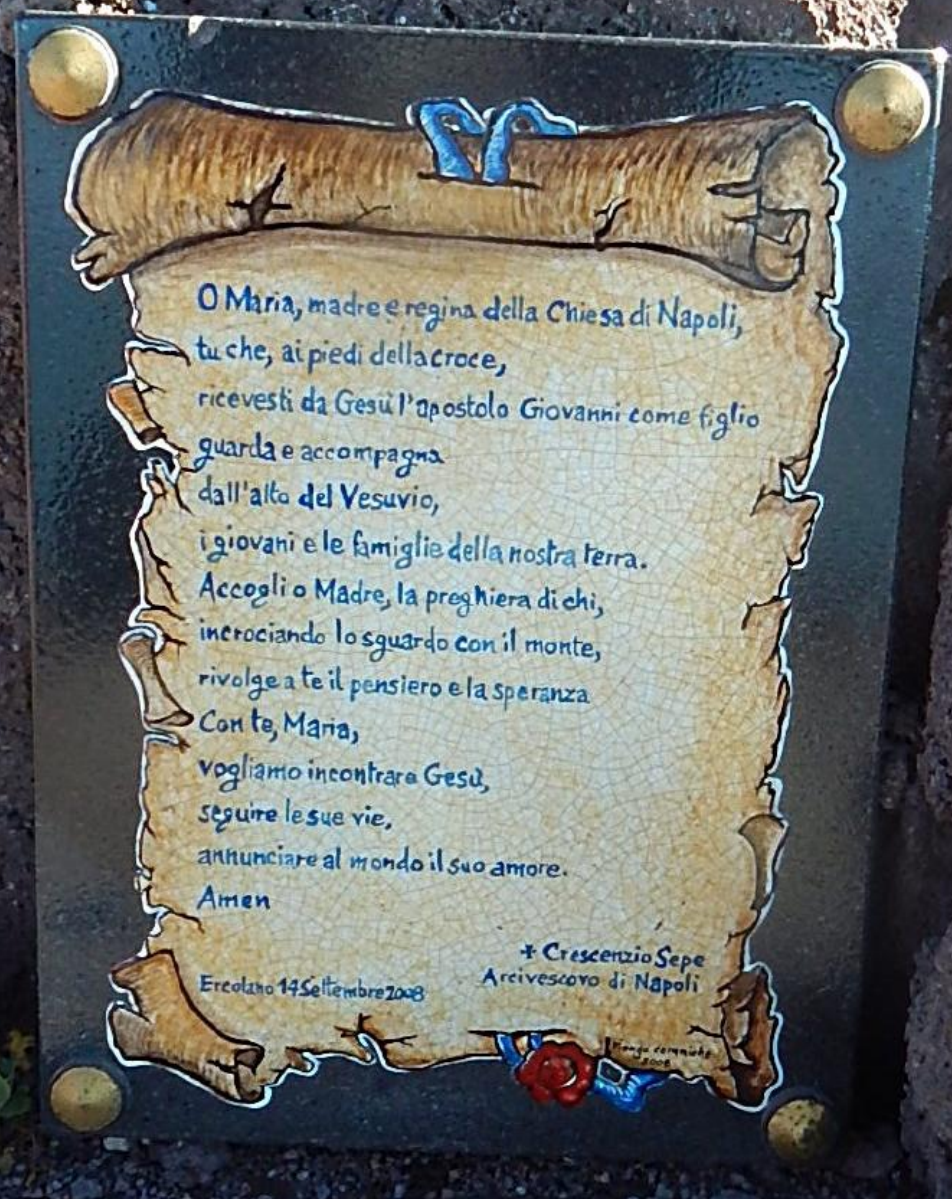 O Maria, madre e regina della Chiesa di Napoli,
tu che, ai piedi della croce,
ricevesti da Gesù l'apostolo Giovanni come figlio
guarda e accompagna
dall'alto del Vesuvio,
i giovani e le famiglie della nostra terra.
Accogli o Madre, la preghiera di chi,
incrociando lo sguardo con il monte,
rivolge a te il pensiero e la speranza
Con te, Maria,
vogliamo incontrare Gesù,
seguire le sue vie,
annunciare al mondo il suo amore.
Amen
+ Crescenzio Sepe
Arcivescovo di Napoli
Ercolano 14 Settembre 2008
2008